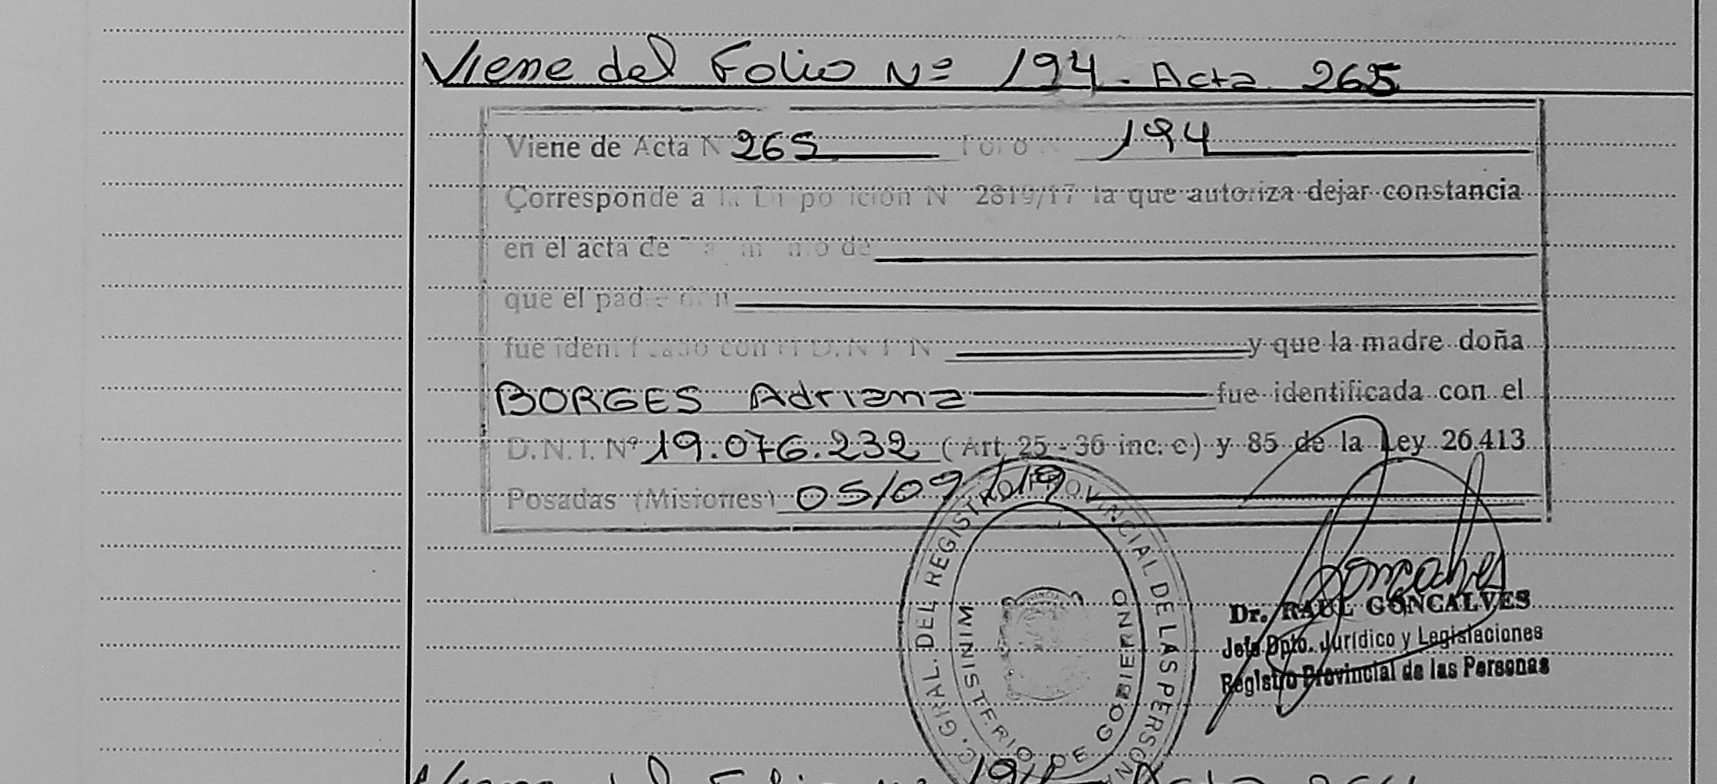 Viene del Folio Nº 194 - Acta 265
Viene de Acta N 265 Folio N 194
Corresponde a la Disposición N 2819/17 la que autoriza dejar constancia
en el acta de de
que el padre don
fue identificado con el D.N.I. N y que la madre doña
BORGES Adriana fue identificada con el
D.N.I. Nº 19.076.232 (Art. 25 - 36 inc. c) y 85 de la Ley 26.413
Posadas (Misiones) 05/09/19
GRAL. DEL REGISTRO PROVINCIAL DE LAS PERSONA
MINISTERIO DE GOBIERNO
Goncalves
Dr. RAUL GONCALVES
Jefe Dpto. Jurídico y Legislaciones
Registro Provincial de las Personas
Viene del Folio Nº 194 - Acta